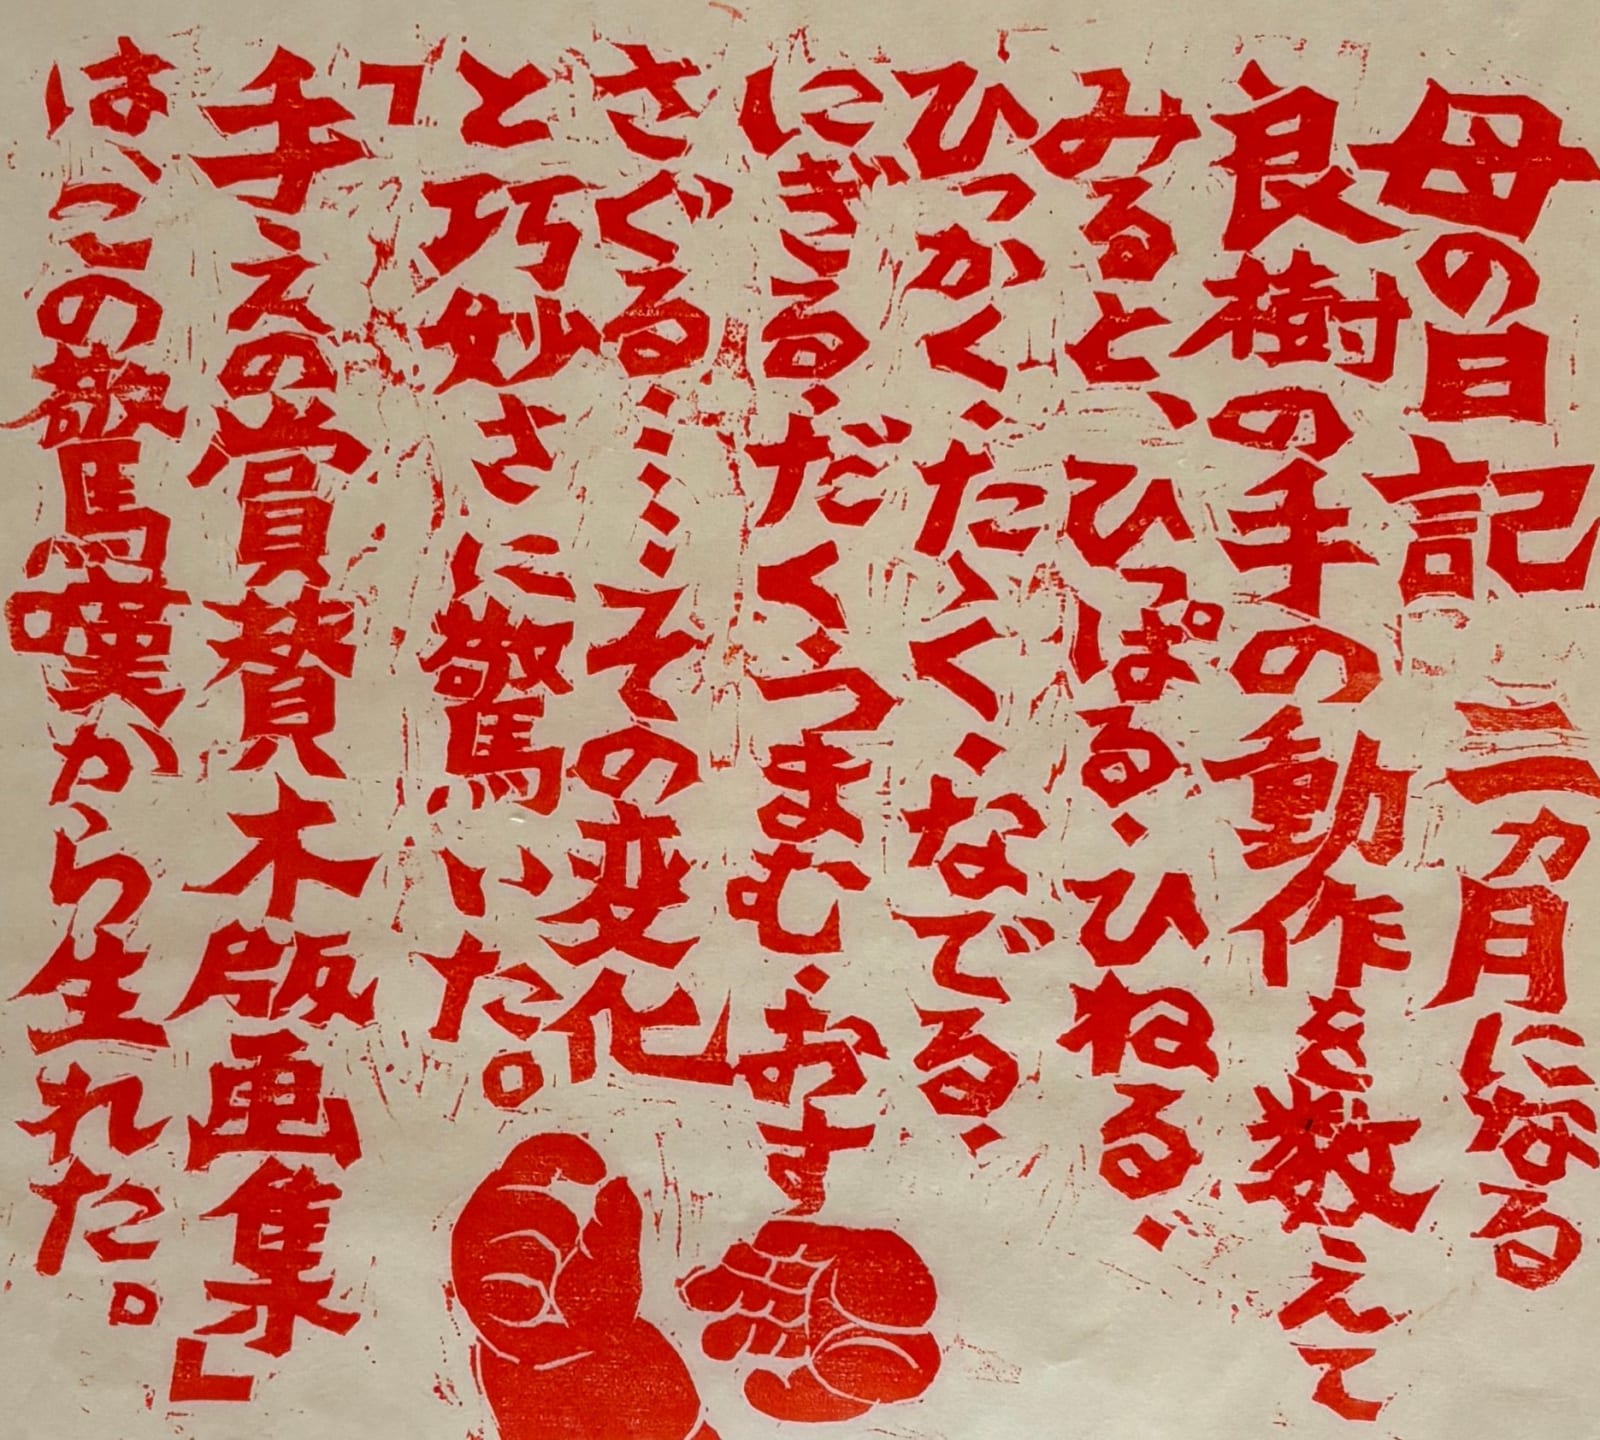 母の日記 三ヵ月になる
良樹の手の動作を数えて
みると、ひっぱる・ひねる・
ひっかく・たゝく・なでる・
にぎる・だく・つまむ・おす
さぐる……その変化
と巧妙さに驚いた。
「手えの賞賛木版画集」
はゝこの驚嘆から生れた。